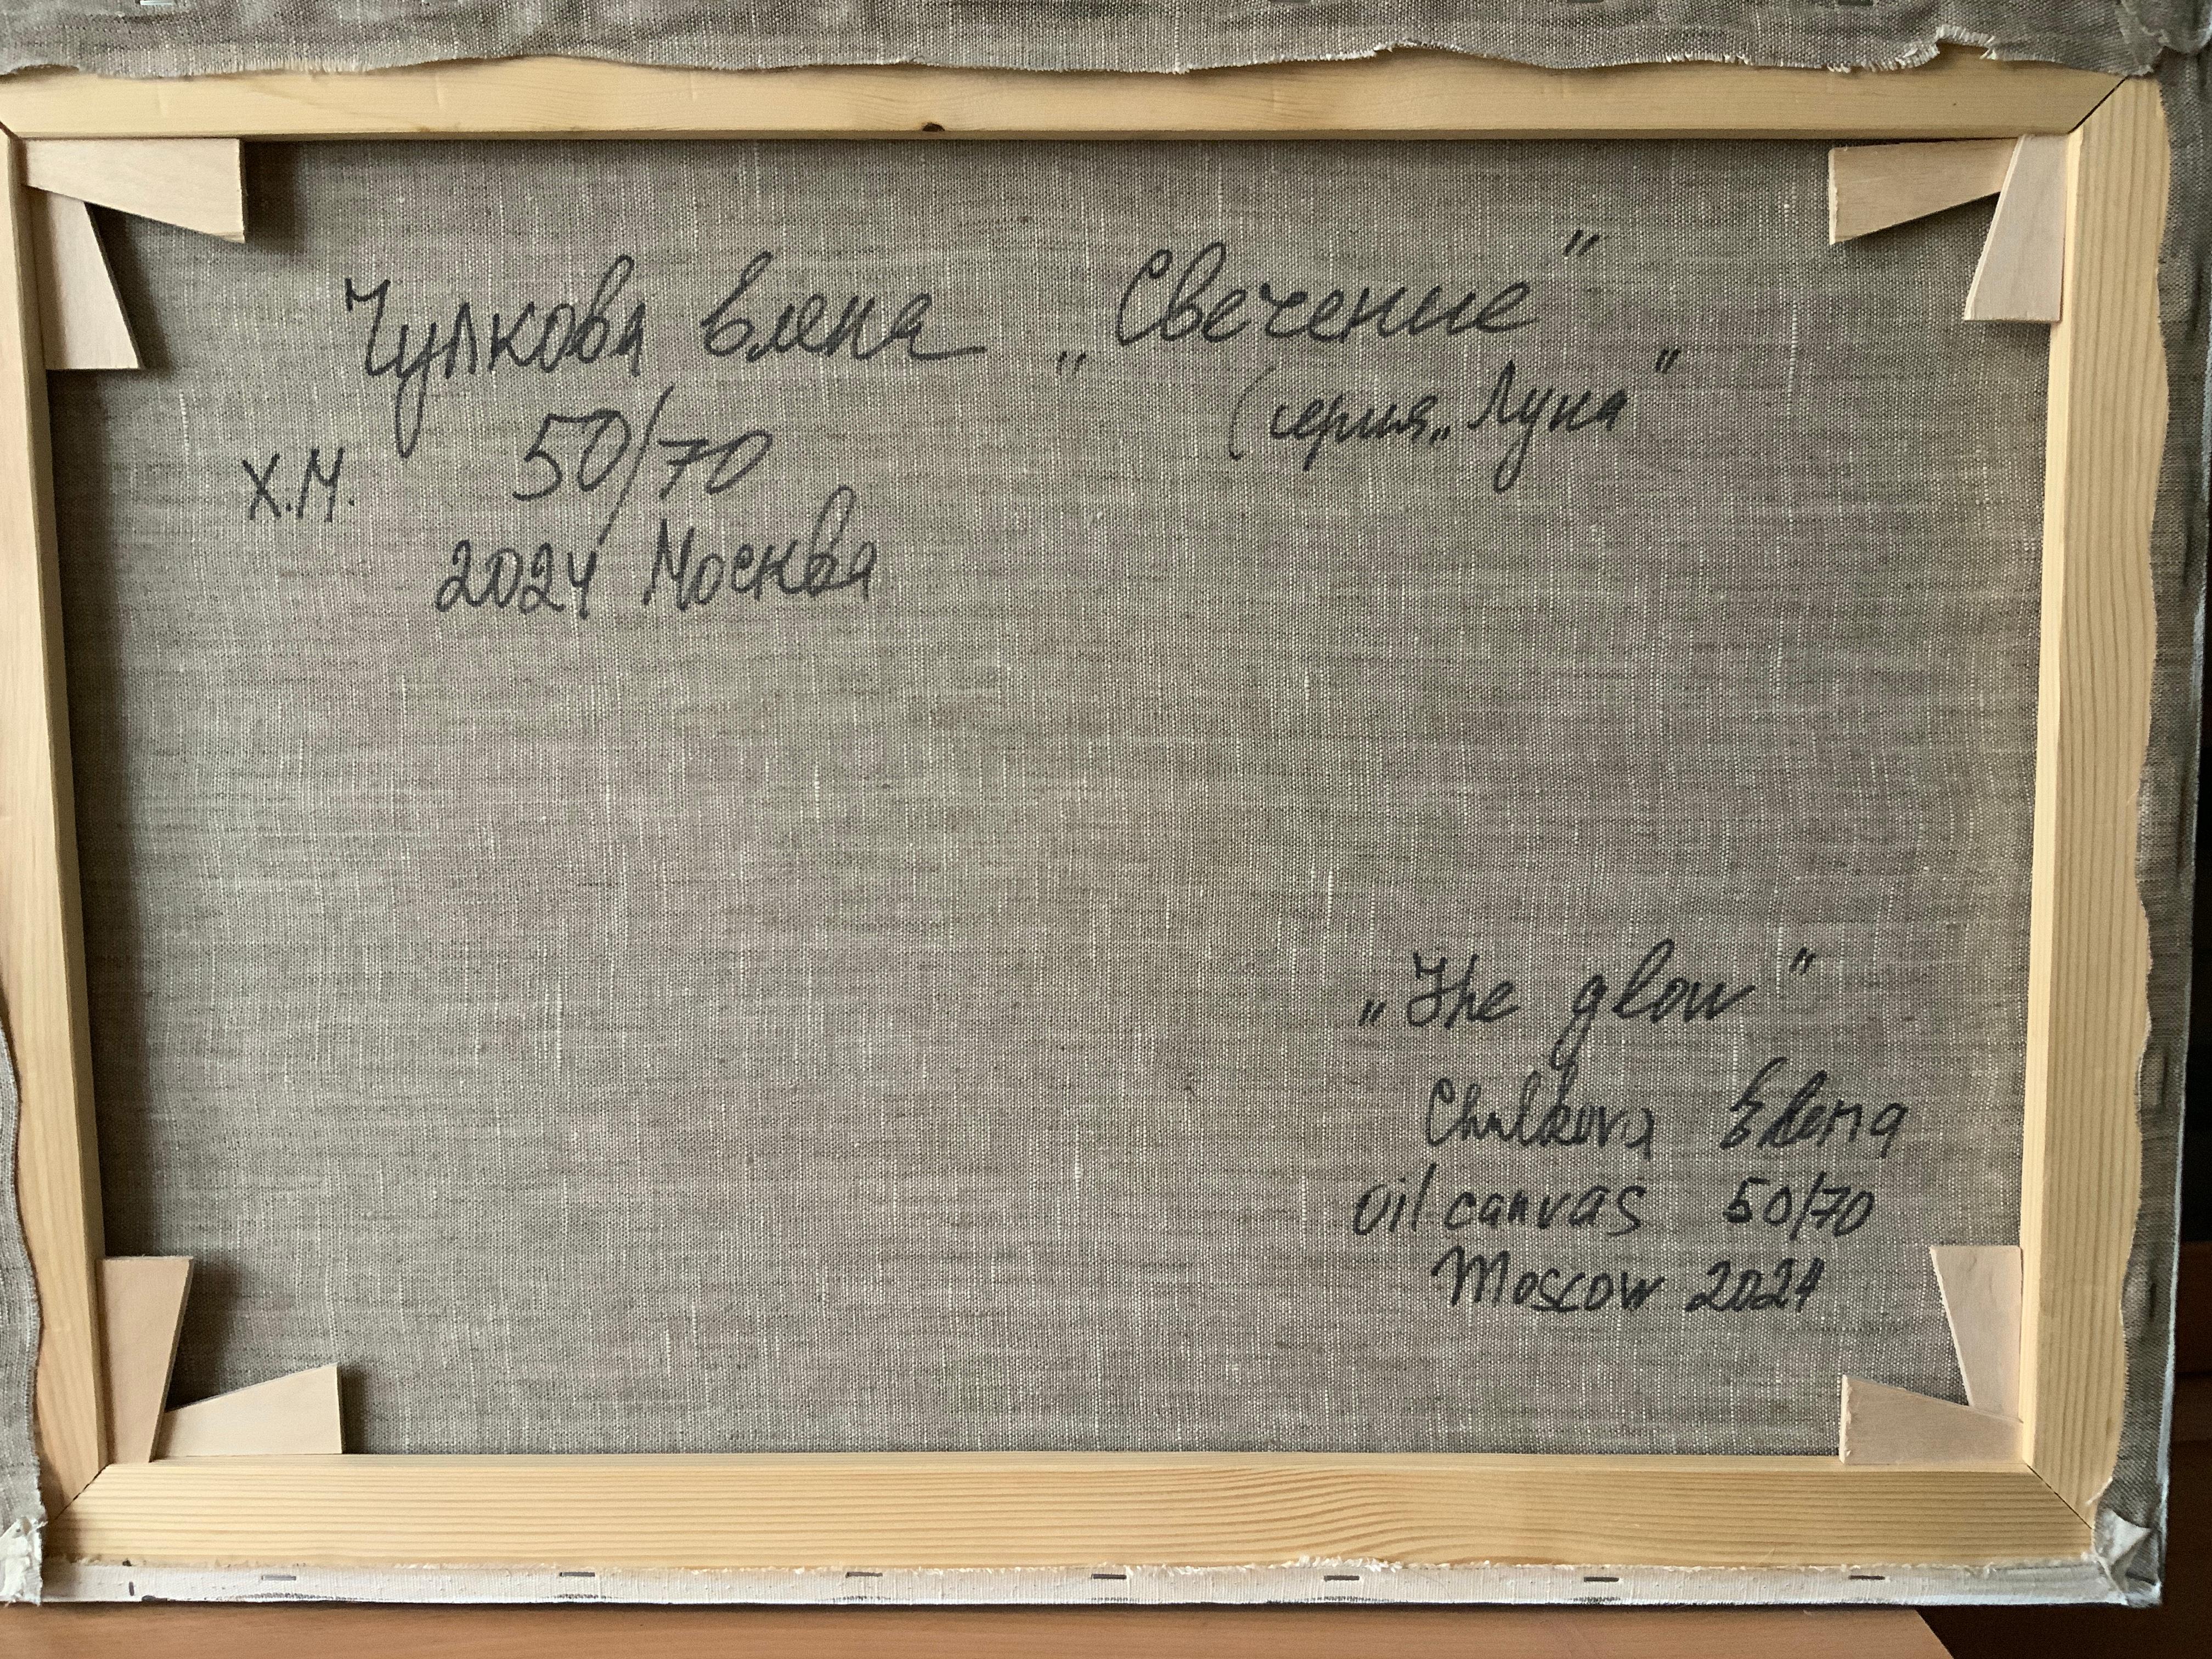 Чулкова Елена „Свечение"
(серия „Луна"
Х.М. 50/70
2024 Москва
„The glow"
Chulkova Elena
oil canvas 50/70
Moscow 2024